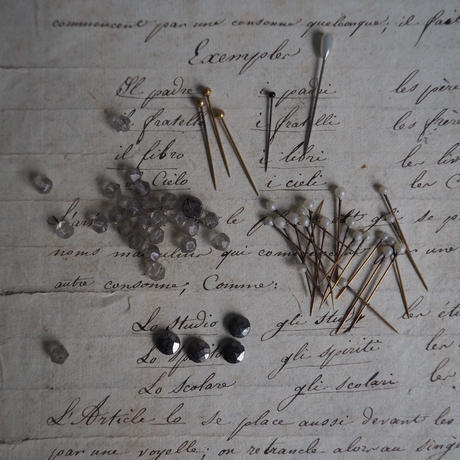 commencent par une consonne quelconque; il fait
Exemples
Il padre i padri les père
il fratello i fratelli les frère
il libro i libri les li
Cielo i cieli les C
L'ar le se p
noms masculin qui comm par une
autre consonne; Comme:
Lo studio gli studj les ét
Lo spirit gli spiriti les
Lo scolare gli scolari les
L'Article lo se place aussi devant les
par une voyelle; on retranche alors au singu